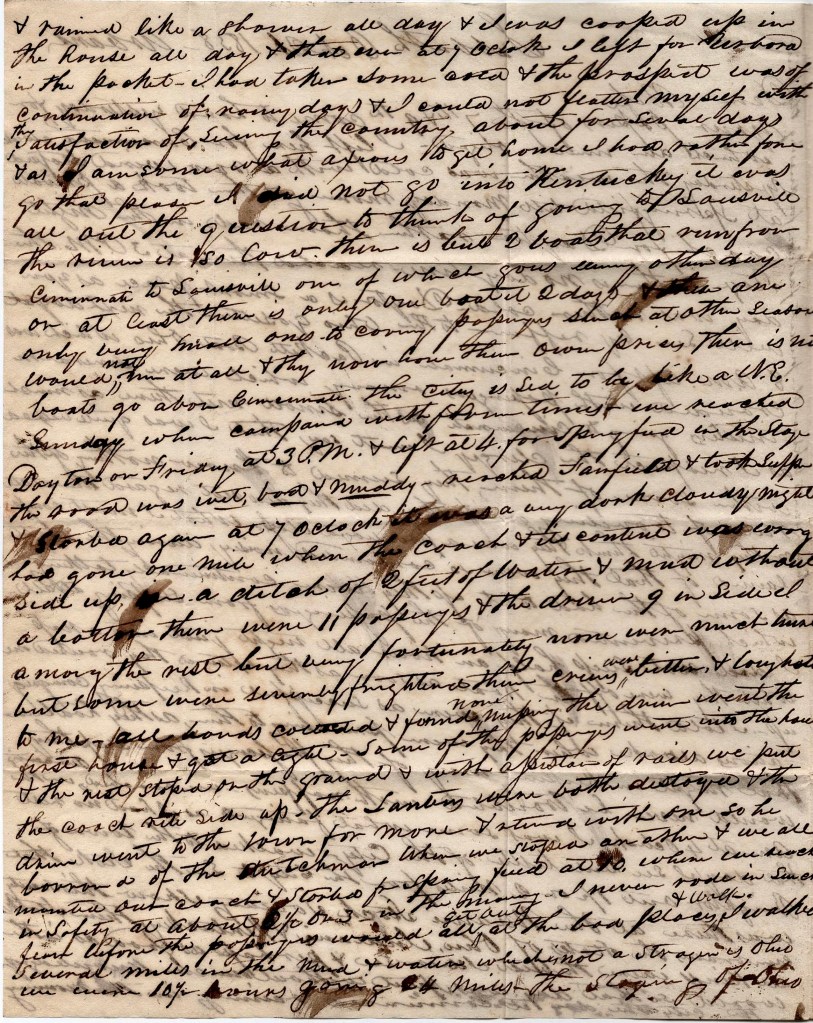 & rained like a shower all day & I was cooped up in
the house all day & that eve at 7 Oclock I left for
in the packet - I had taken some cold & the prospect was of
continuation of rainy days & I could not flatter myself with
the satisfaction of seeing the country about for several days
& as I am some what axious to get home I had rather fore
go that pleasure I did not go into Kentuckey it was
all out the question to think of going to Louisville
the river is so low. there is but 2 boats that run from
Cincinnati to Louisville one of which goes every other day
or at least there is only one boat it 2 days & these are
only very made ones to convey at other season
would not run at all & they now have their own prices there is no
boats go abov Cincinnati the City is sed to be like a N.E.
Sunday when compaird with former times - we reached
Dayton on Friday at 3 P.M. & left at 4. for Springfield in the Stage
the road was wet, bad & muddy - reached Fairfield & took Supp
& Started again at 7 Oclock it was a very dark cloudy night
had gone one mile when the coach & its content was wrong
side up, in a ditch of 2 feet of Water & mud without
a bottom there were 11 & the driver 9 in Side I
among the rest but very fortunately none were much hurt
but some were severely frightend their cries were bitter, &
to me - all hands & found none missing the driver went the
first house & got a light - Some of the went into the house
& the rest stopd on the ground & with of rails we put
the coach rite side up - the Lantens were both destroyed & the
driver went to the town for more & returnd with one so he
borrowed of the dutchman when we stoped an other & we all
mounted our coach & Started for Springfield at where we reach
in Safety at about in the morning - I never rode in Such
fear before the would all get out & walk at the bad places, I walked
Several miles in the mud & water which is not a Strager is Ohio
we were 10½ hours going 24 miles the Staging of Ohio